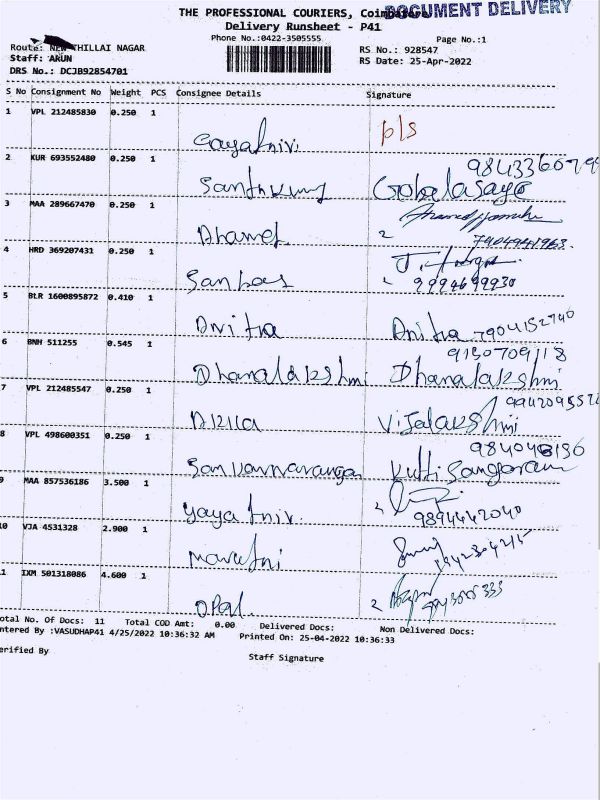 THE PROFESSIONAL COURIERS, Coimbatore
DOCUMENT DELIVERY
Delivery Runsheet - P41
Phone No.:0422-3505555
Page No.:1
Route: NEW THILLAI NAGAR
RS No.: 928547
Staff: ARUN
RS Date: 25-Apr-2022
DRS No.: DCJB92854701
S No Consignment No Weight PCS Consignee Details Signature
1 VPL 212485830 0.250 1
Gayatnivi p/s
2 KUR 693552480 0.250 1
Santhkumy
3 MAA 289667470 0.250 1
Dhamet 2
4 HRD 369207431 0.250 1
Sanbas 9994699930
5 BLR 1600895872 0.410 1
Anitha Anitha 7904152740
6 BNH 511255 0.545 1 9150709118
Dhanalakshmi Dhanalakshmi
7 VPL 212485547 0.250 1
Akila Vijalakshmi
8 VPL 498600351 0.250 1
Kutti
9 MAA 857536186 3.500 1
9894442040
10 VJA 4531328 2.900 1
Marutni
11 IXM 501318086 4.600 1
Opal 2
otal No. Of Docs: 11 Total COD Amt: 0.00 Delivered Docs: Non Delivered Docs:
ntered By :VASUDHAP41 4/25/2022 10:36:32 AM Printed On: 25-04-2022 10:36:33
erified By
Staff Signature